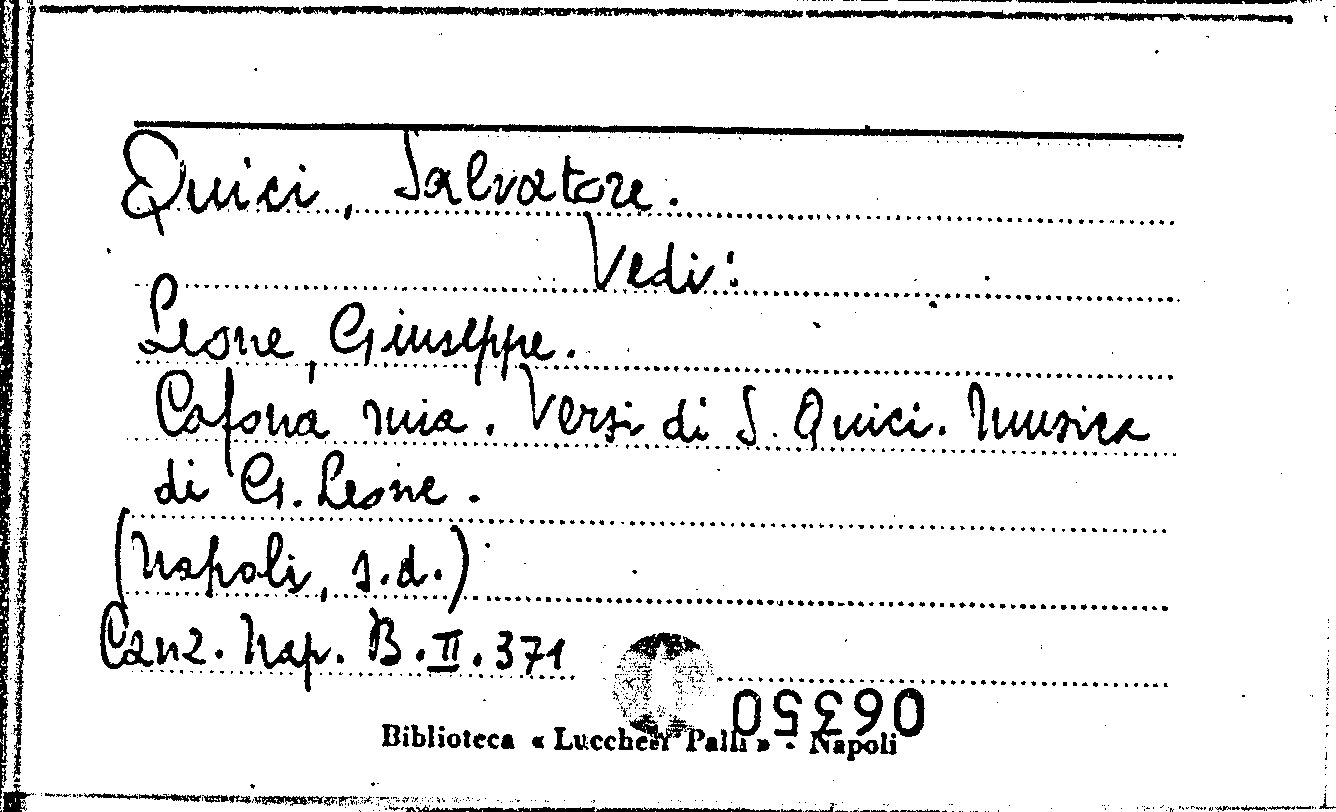 Quici, Salvatore.
Vedi:
Leone, Giuseppe.
Cafona mia. Versi di S. Quici. Musica
di G. Leone.
(Napoli, s.d.)
Canz. Nap. B.II.371
06350
Biblioteca « Lucchesi Palli » - Napoli